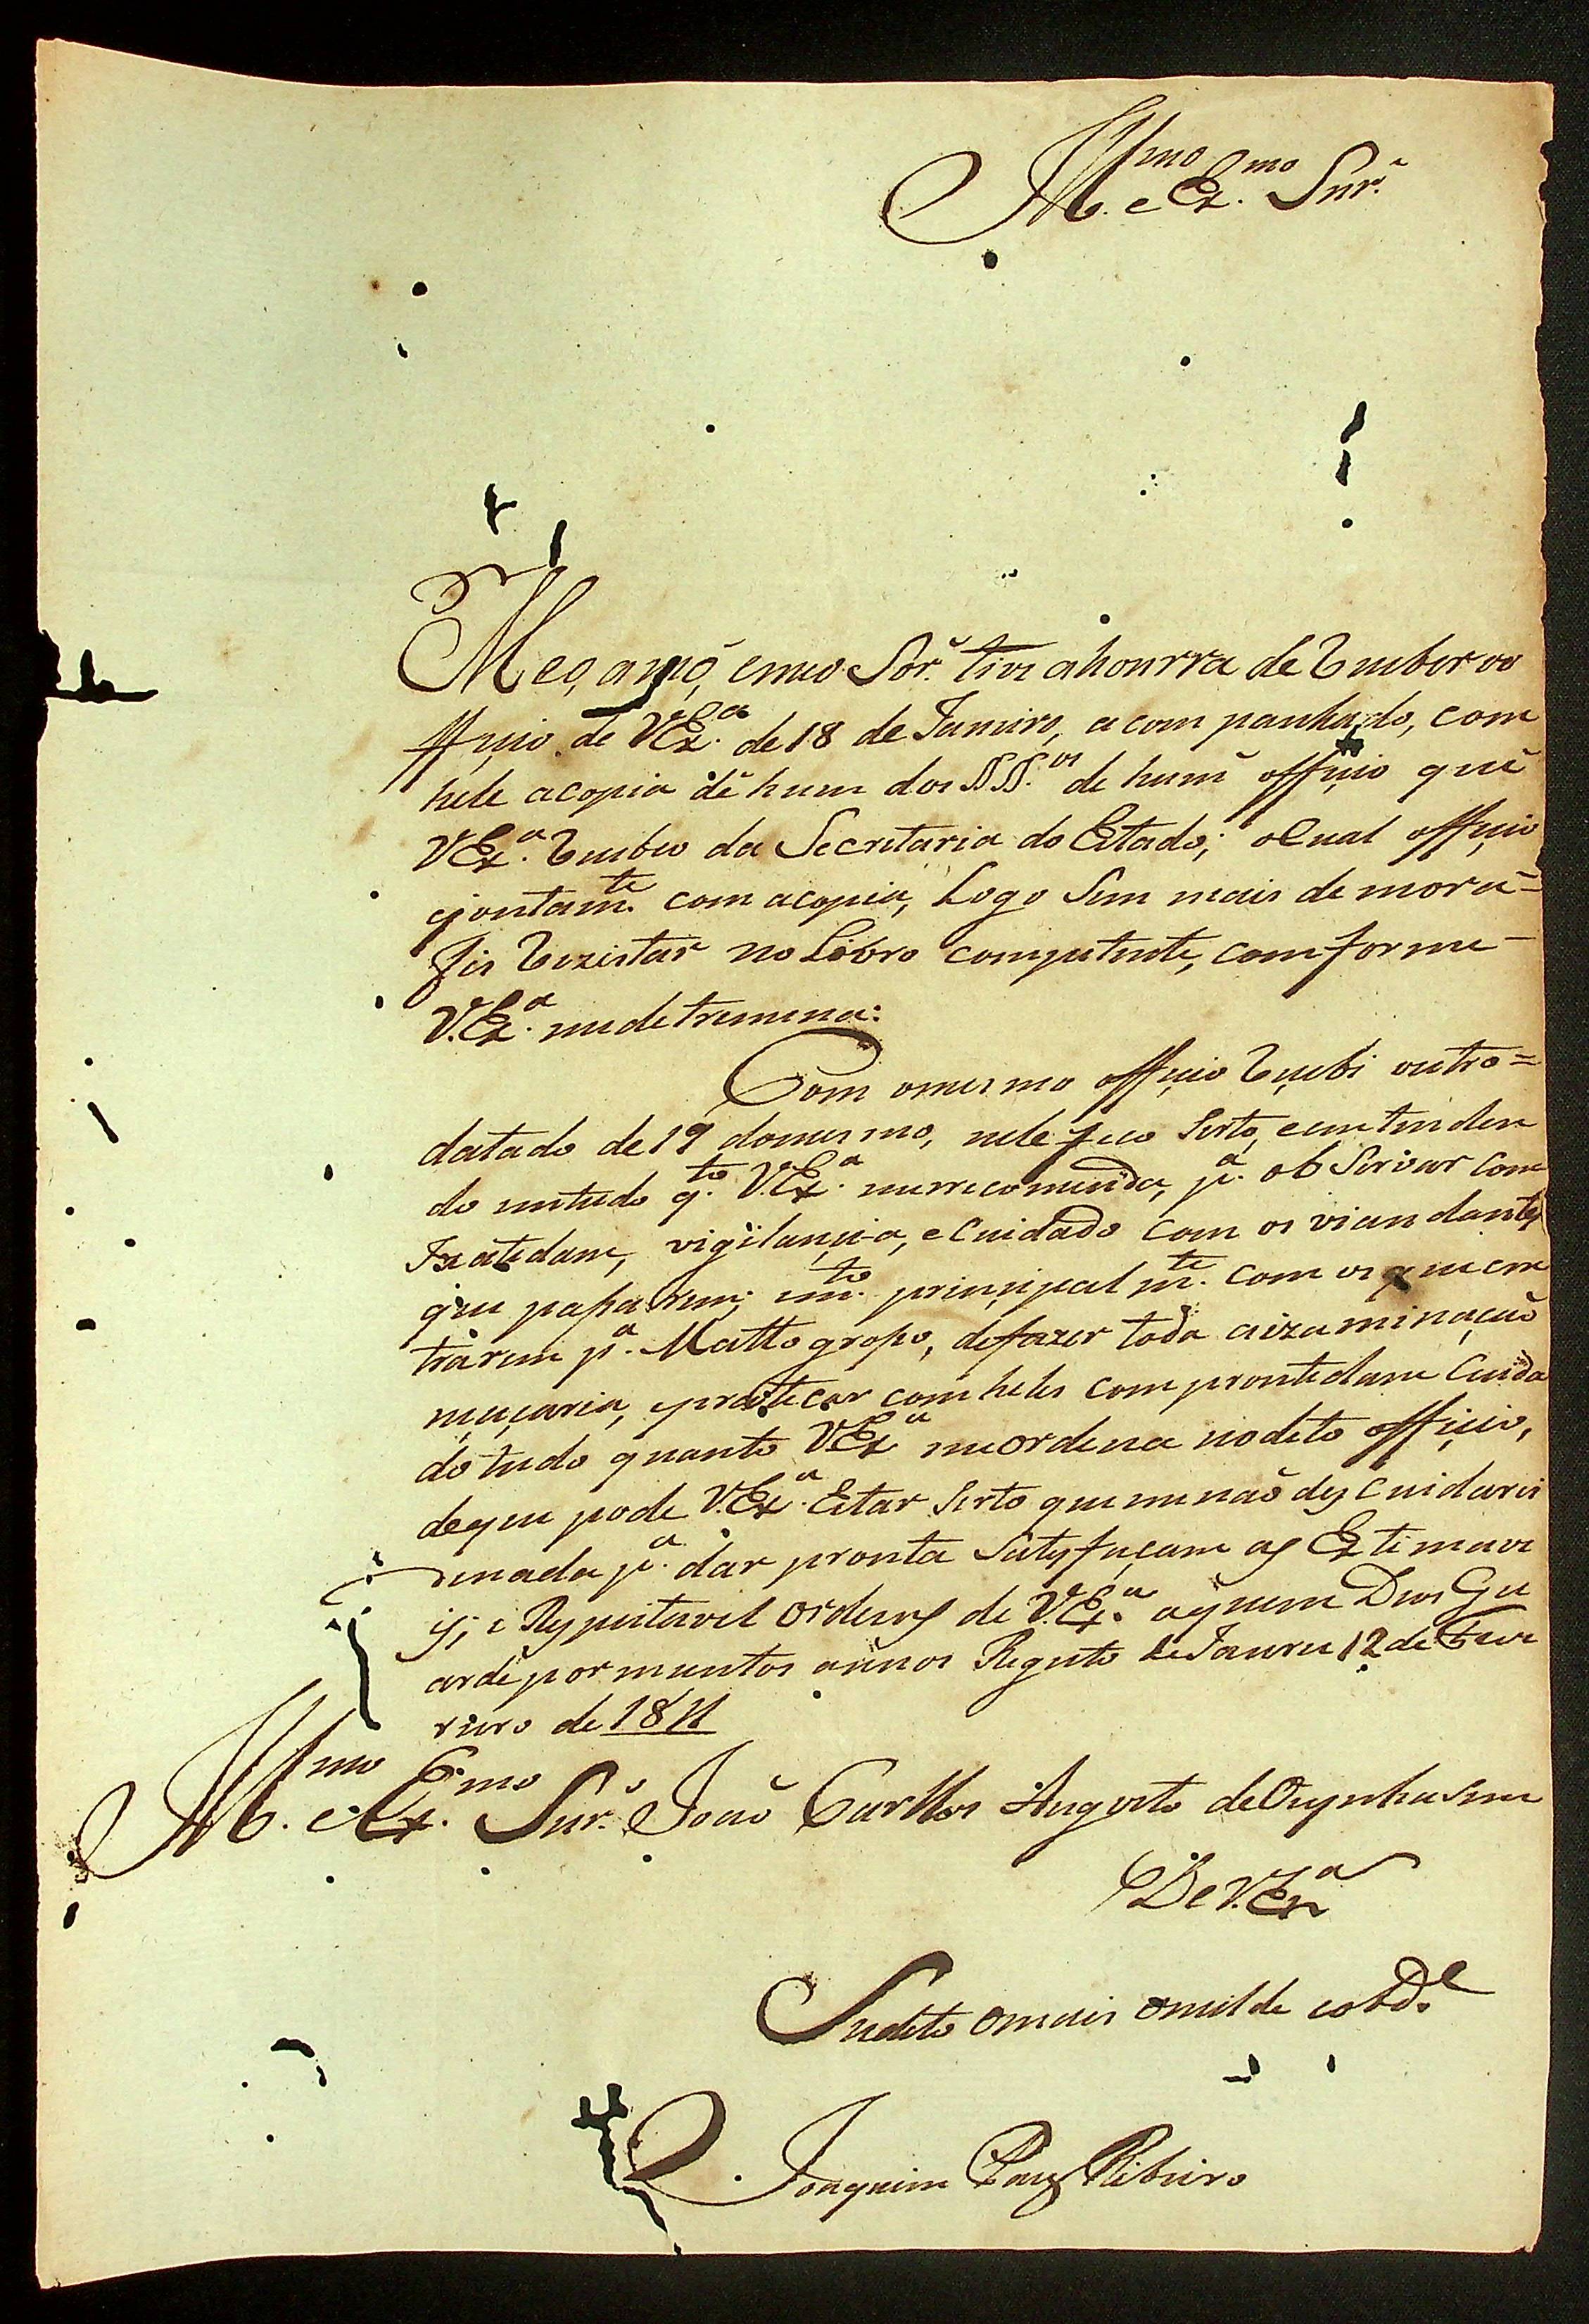 Ill.mo e Ex.mo Snr.
Meo, amó, emeo Sor. tive ahonrra de Reseber oo
fficio de VEx.a de 18 de Janeiro, acom panhado, com
hele acopia de hum dos §§.os de hum officio que
VEx.a Resebeo da Secretaria do Estado; oCual officio
ejontam.te com acopia, Logo Sem mais demora=
fis Rezistar no Libro competente, comforme
V.Ex.a medetremina:
Com omesmo officio Recebi outro=
datado de 19 domesmo, nele fico Serto, eemtenden
do emtudo q.to V.Ex.a merrecomenda, p.a obServar Com
Izatedam, vigilancia, eCuidado Com os viandantes
que pasarem; em.to principalm.te Com os que em
trarem p.a Matto groso, defazer toda aizaminação
necaria, epraticar comheles comprontedam e Cuida
do tudo quanto VEx.a meordena nodito officio,
deque pode V.Ex.a Estar Serto que menaõ descuidarei
denada p.a dar pronta Satysfaçam as Estimave
is, e Respeitavel ordens de V.Ex.a aquem Deos Gu
arde por muntos annos Registo de Jauru 12 de Feve
reiro de 1811
Ill.mo e Ex.mo Snr. Joaõ Carllos Augusto deOeynhasem
DeV.Ex.a
Sudito omais omilde eobd.e
Joaquim Paes Ribeiro